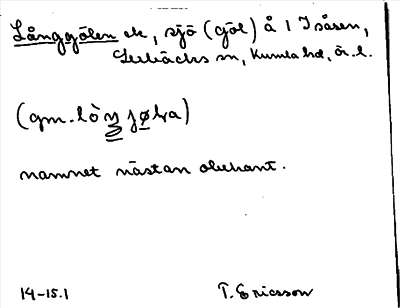 Långgölen ek, sjö (göl) å 1 Isåsen,
Lerbäcks sn, Kumla hd, ör. l.
(gm. lòŋ jøłra)
namnet nästan okänt.
14-15.1 T. Ericsson